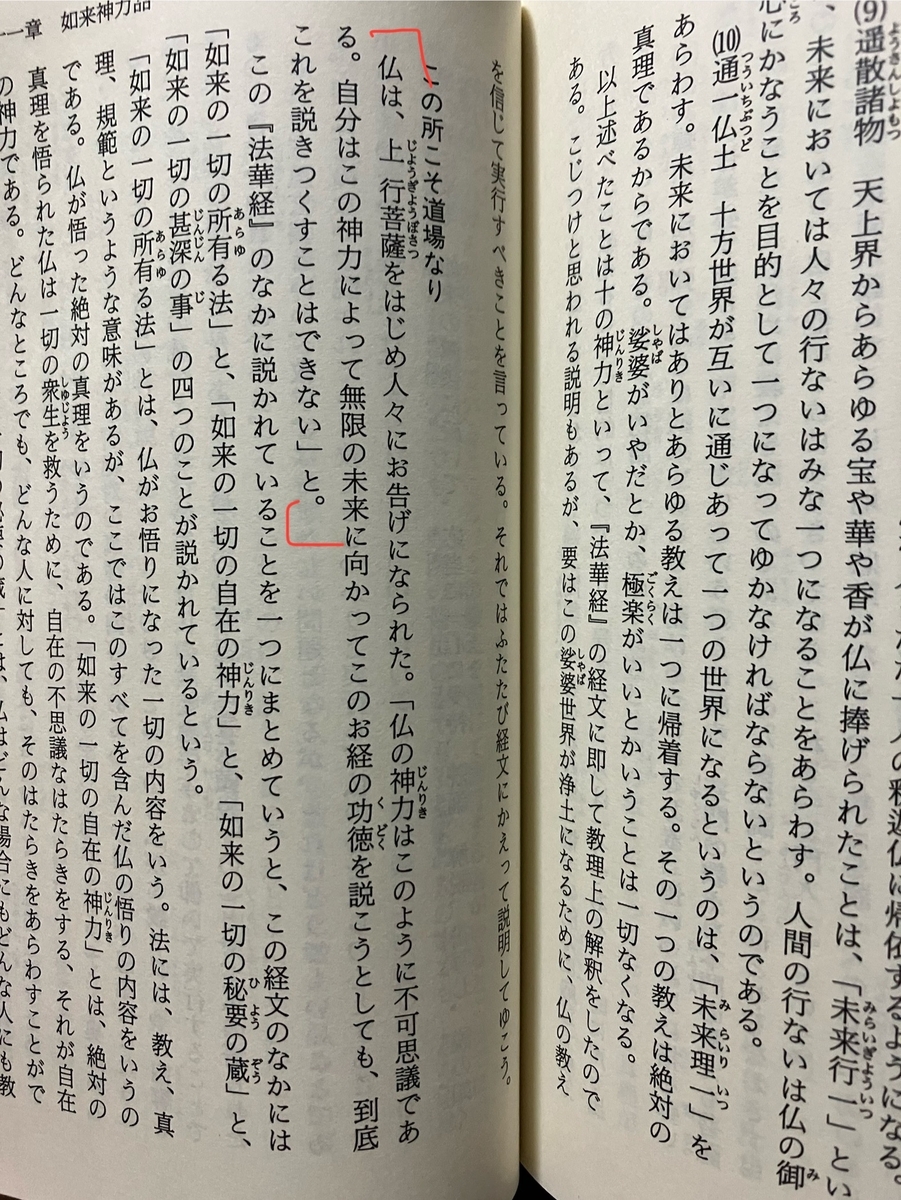 (9)遥散諸物　天上界からあらゆる宝や華や香が仏に捧げられたことは、「未来行一」とい
、未来においては人々の行ないはみな一つになることをあらわす。人間の行ないは仏の御
心にかなうことを目的として一つになってゆかなければならないというのである。
(10)通一仏土　十方世界が互いに通じあって一つの世界になるというのは、「未来理一」を
あらわす。未来においてはありとあらゆる教えは一つに帰着する。その一つの教えは絶対の
真理であるからである。娑婆がいやだとか、極楽がいいとかいうことは一切なくなる。
以上述べたことは十の神力といって、『法華経』の経文に即して教理上の解釈をしたので
ある。こじつけと思われる説明もあるが、要はこの娑婆世界が浄土になるために、仏の教え
を信じて実行すべきことを言っている。それではふたたび経文にかえって説明してゆこう。
一章　如来神力品
この所こそ道場なり
仏は、上行菩薩をはじめ人々にお告げになられた。「仏の神力はこのように不可思議であ
る。自分はこの神力によって無限の未来に向かってこのお経の功徳を説こうとしても、到底
これを説きつくすことはできない」と。
この『法華経』のなかに説かれていることを一つにまとめていうと、この経文のなかには
「如来の一切の所有る法」と、「如来の一切の自在の神力」と、「如来の一切の秘要の蔵」と、
「如来の一切の甚深の事」の四つのことが説かれているという。
「如来の一切の所有る法」とは、仏がお悟りになった一切の内容をいう。法には、教え、真
理、規範というような意味があるが、ここではこのすべてを含んだ仏の悟りの内容をいうの
である。仏が悟った絶対の真理をいうのである。「如来の一切の自在の神力」とは、絶対の
真理を悟られた仏は一切の衆生を救うために、自在の不思議なはたらきをする、それが自在
の神力である。どんなところでも、どんな人に対しても、そのはたらきをあらわすことがで